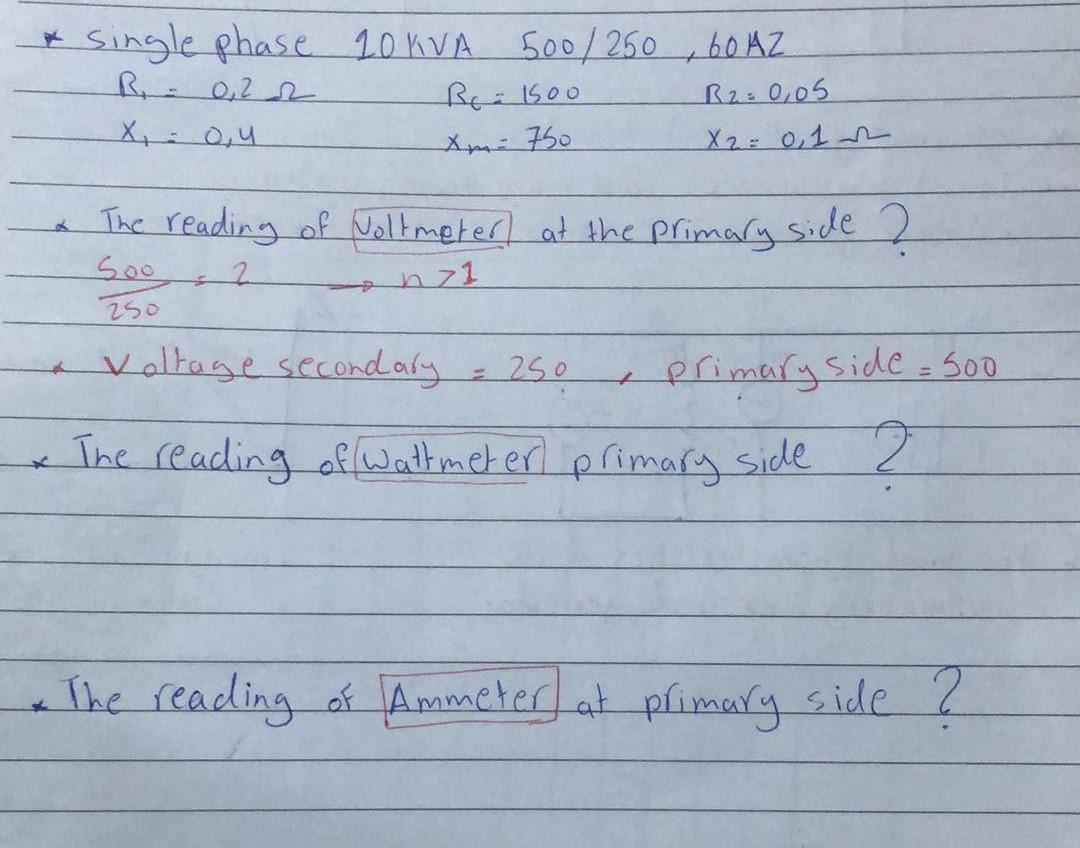 * single phase 10 KVA 500/250 , 60 HZ
R1 = 0,2 Ω Rc = 1500 R2 = 0,05
X1 = 0,4 Xm = 750 X2 = 0,1 Ω
* The reading of Voltmeter at the primary side ?
500/250 = 2 → n > 1
* Voltage secondary = 250 , primary side = 500
* The reading of Wattmeter primary side ?
* The reading of Ammeter at primary side ?